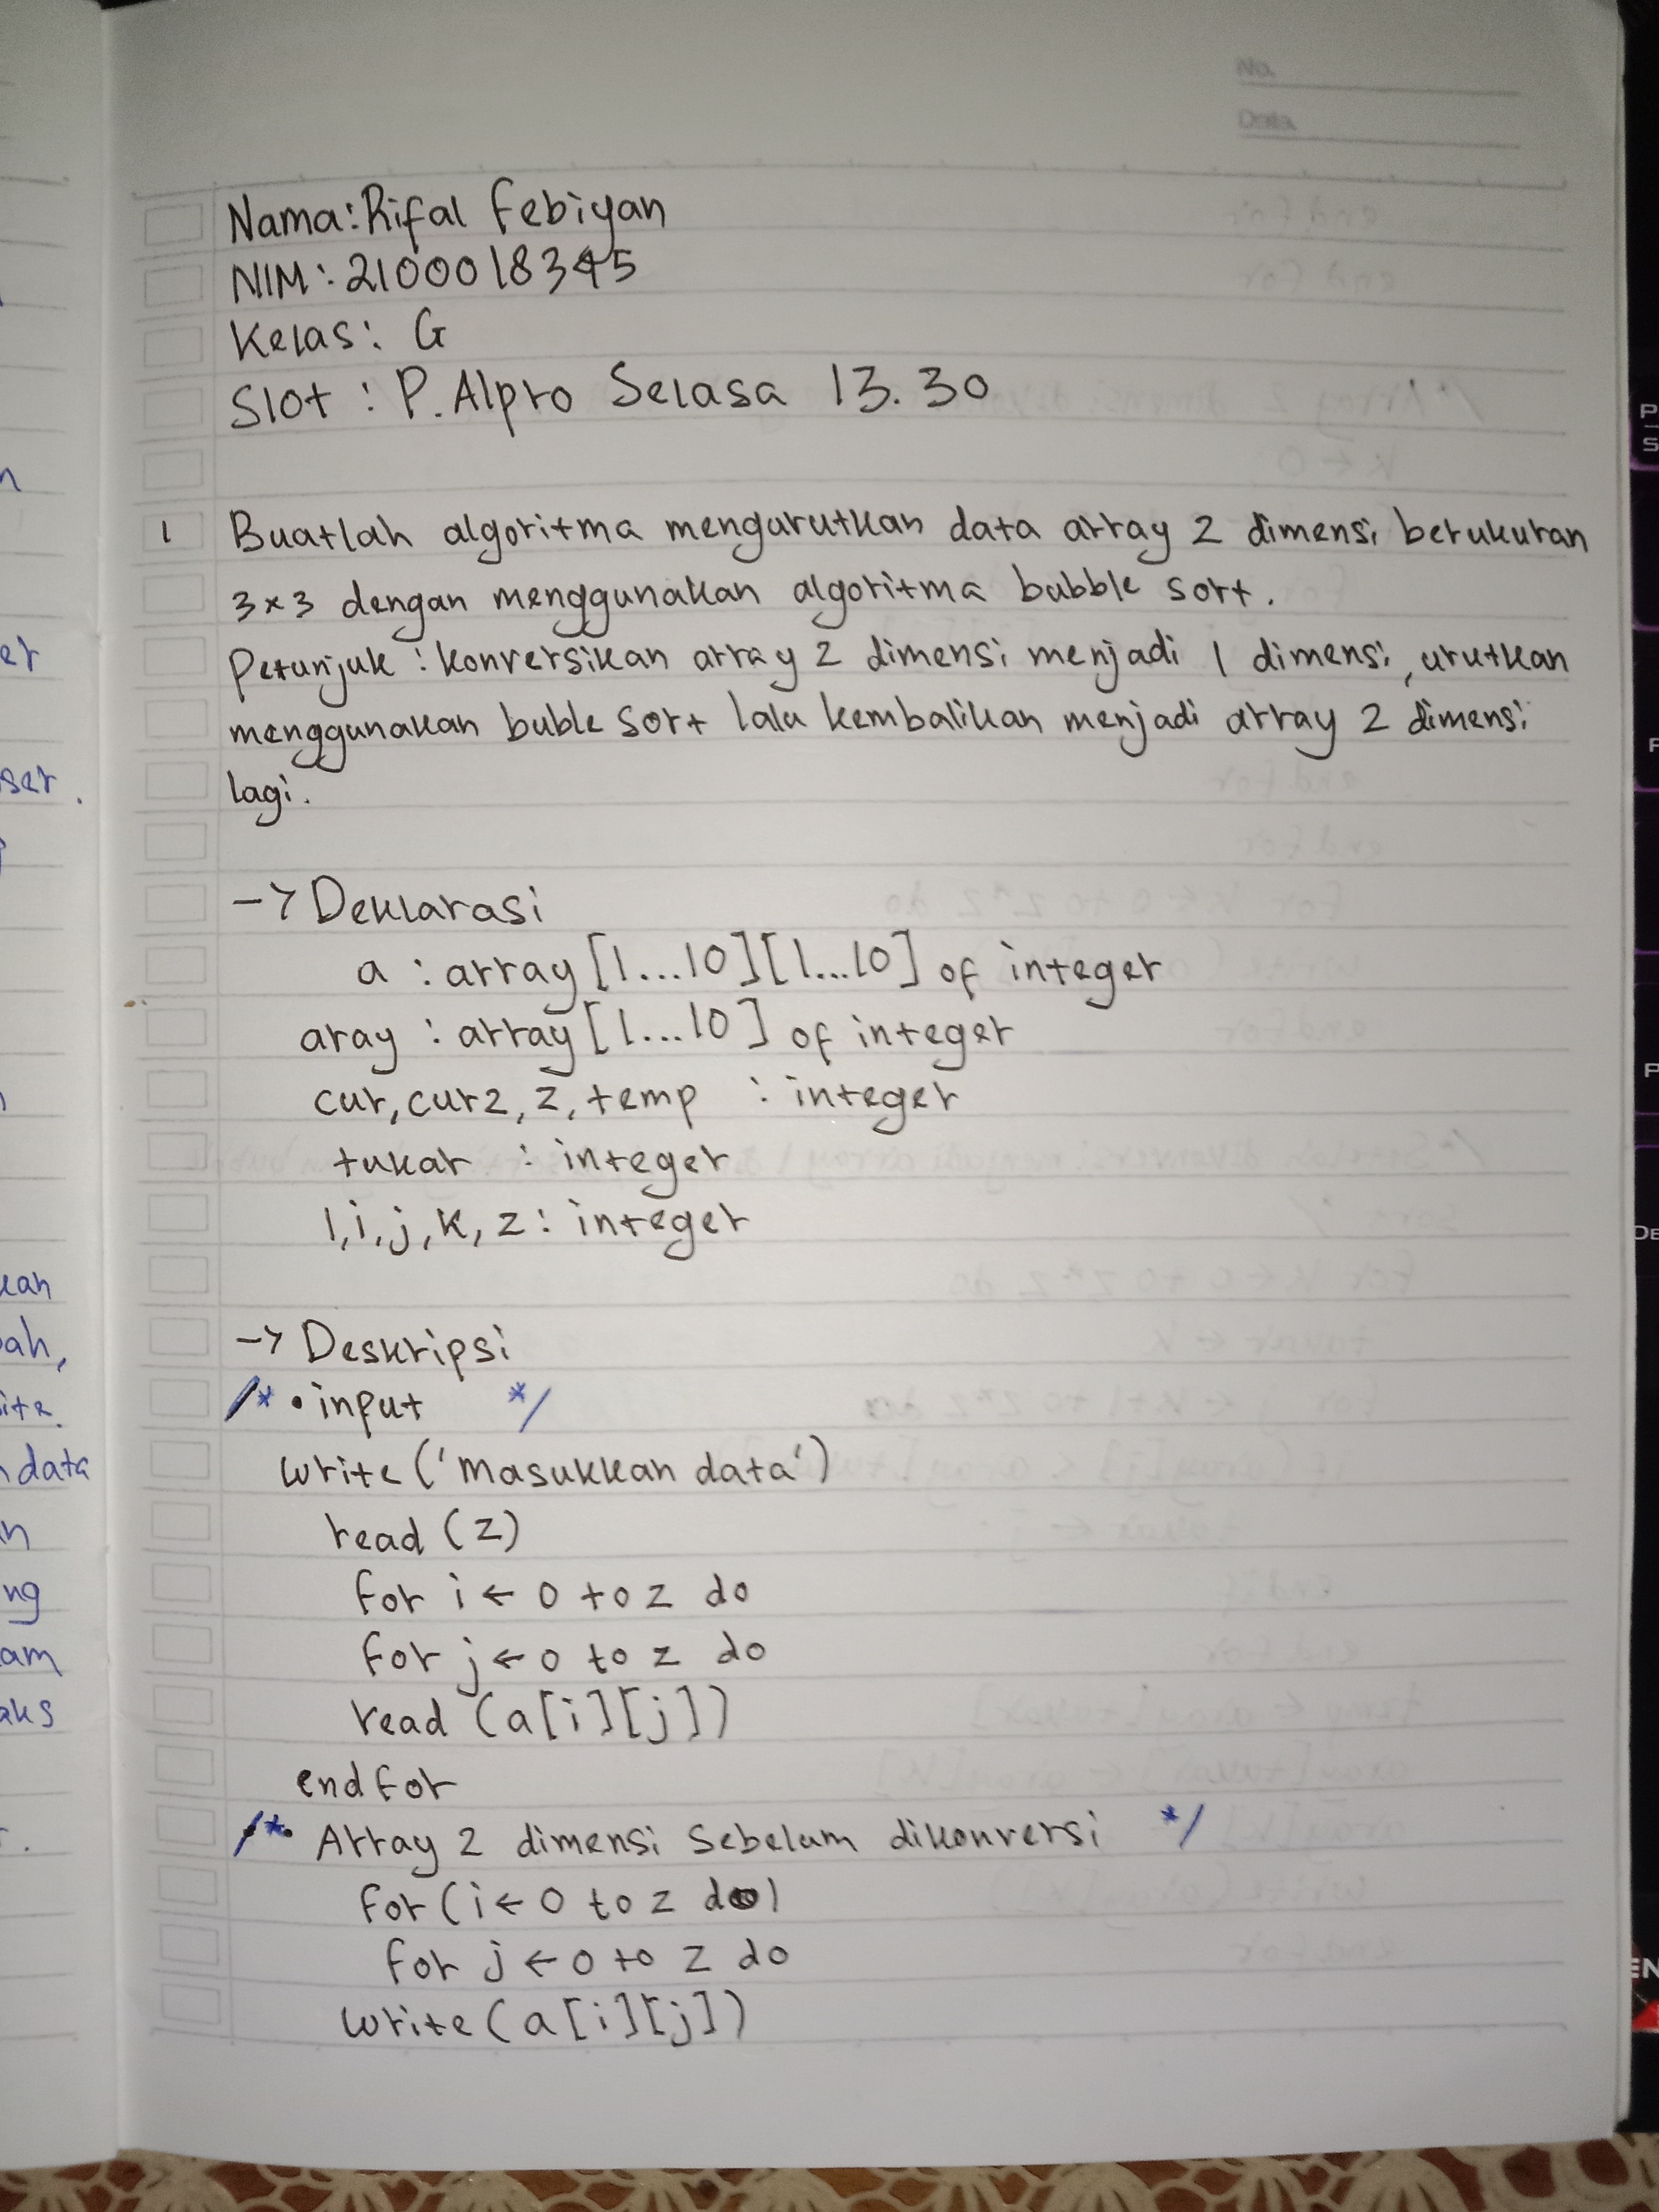 No.
Date
Nama: Rifal Febiyan
NIM: 2100018345
Kelas: G
Slot : P. Alpro Selasa 13.30
1 Buatlah algoritma mengurutkan data array 2 dimensi berukuran
3x3 dengan menggunakan algoritma bubble sort.
Petunjuk : konversikan array 2 dimensi menjadi 1 dimensi, urutkan
menggunakan buble sort lalu kembalikan menjadi array 2 dimensi
lagi.
-> Deklarasi
a : array [1...10][1...10] of integer
aray : array [1...10] of integer
cur, cur2, z, temp : integer
tukar : integer
l, i, j, k, z : integer
-> Deskripsi
/* • input */
write ('masukkan data')
read (z)
for i ← 0 to z do
for j ← 0 to z do
read (a[i][j])
endfor
/* Array 2 dimensi sebelum dikonversi */
for (i ← 0 to z do)
for j ← 0 to z do
write (a[i][j])
er
ser.
kan
ah,
data
ng
am
aks